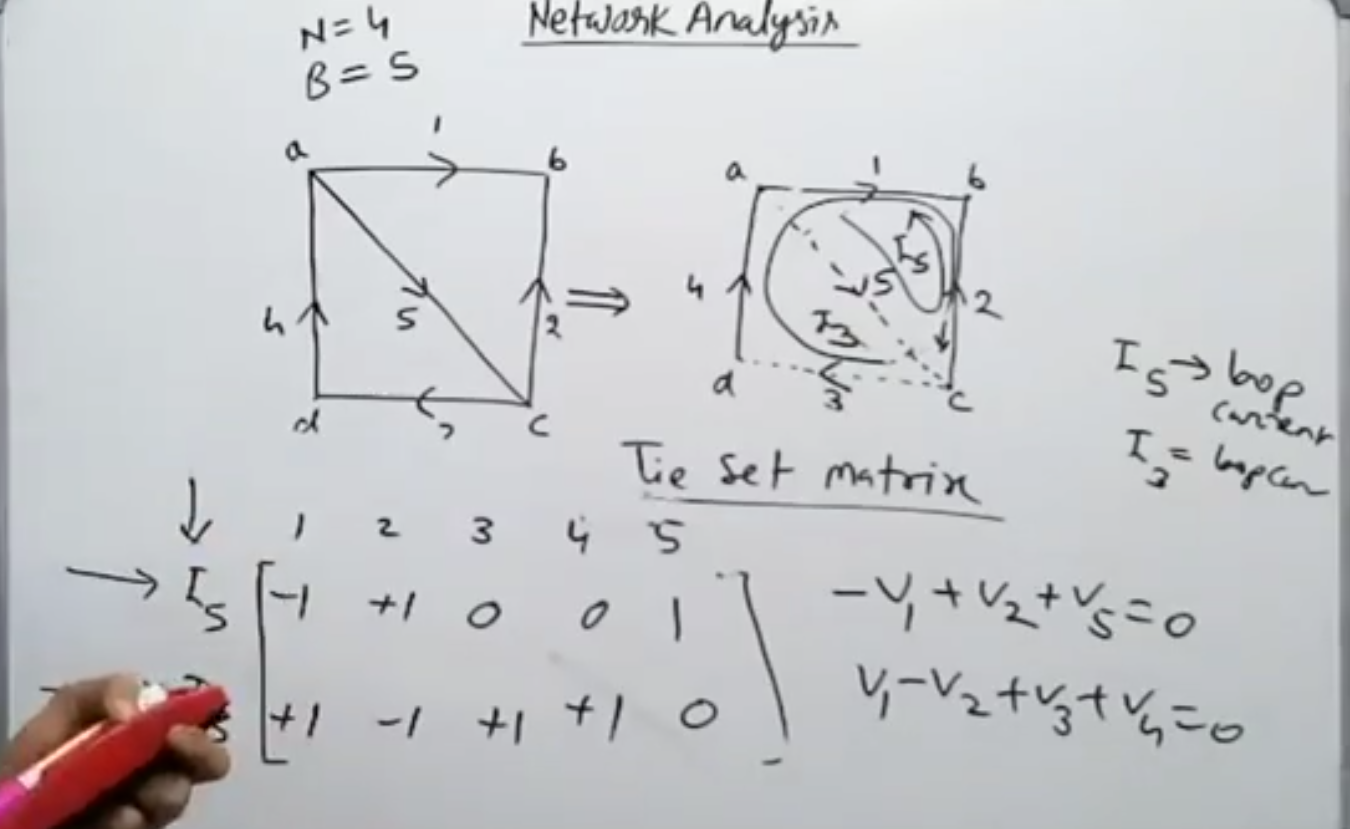 Network Analysis
N=4
B=5
a 1 b
4 5 2
d 3 c
⇒
a 1 b
I5
4 5 2
I3
d 3 c
I5 → loop
current
I3 = loop cur
Tie set matrix
↓ 1 2 3 4 5
→ I5 [ -1 +1 0 0 1 ] -V1+V2+V5=0
[ +1 -1 +1 +1 0 ] V1-V2+V3+V4=0